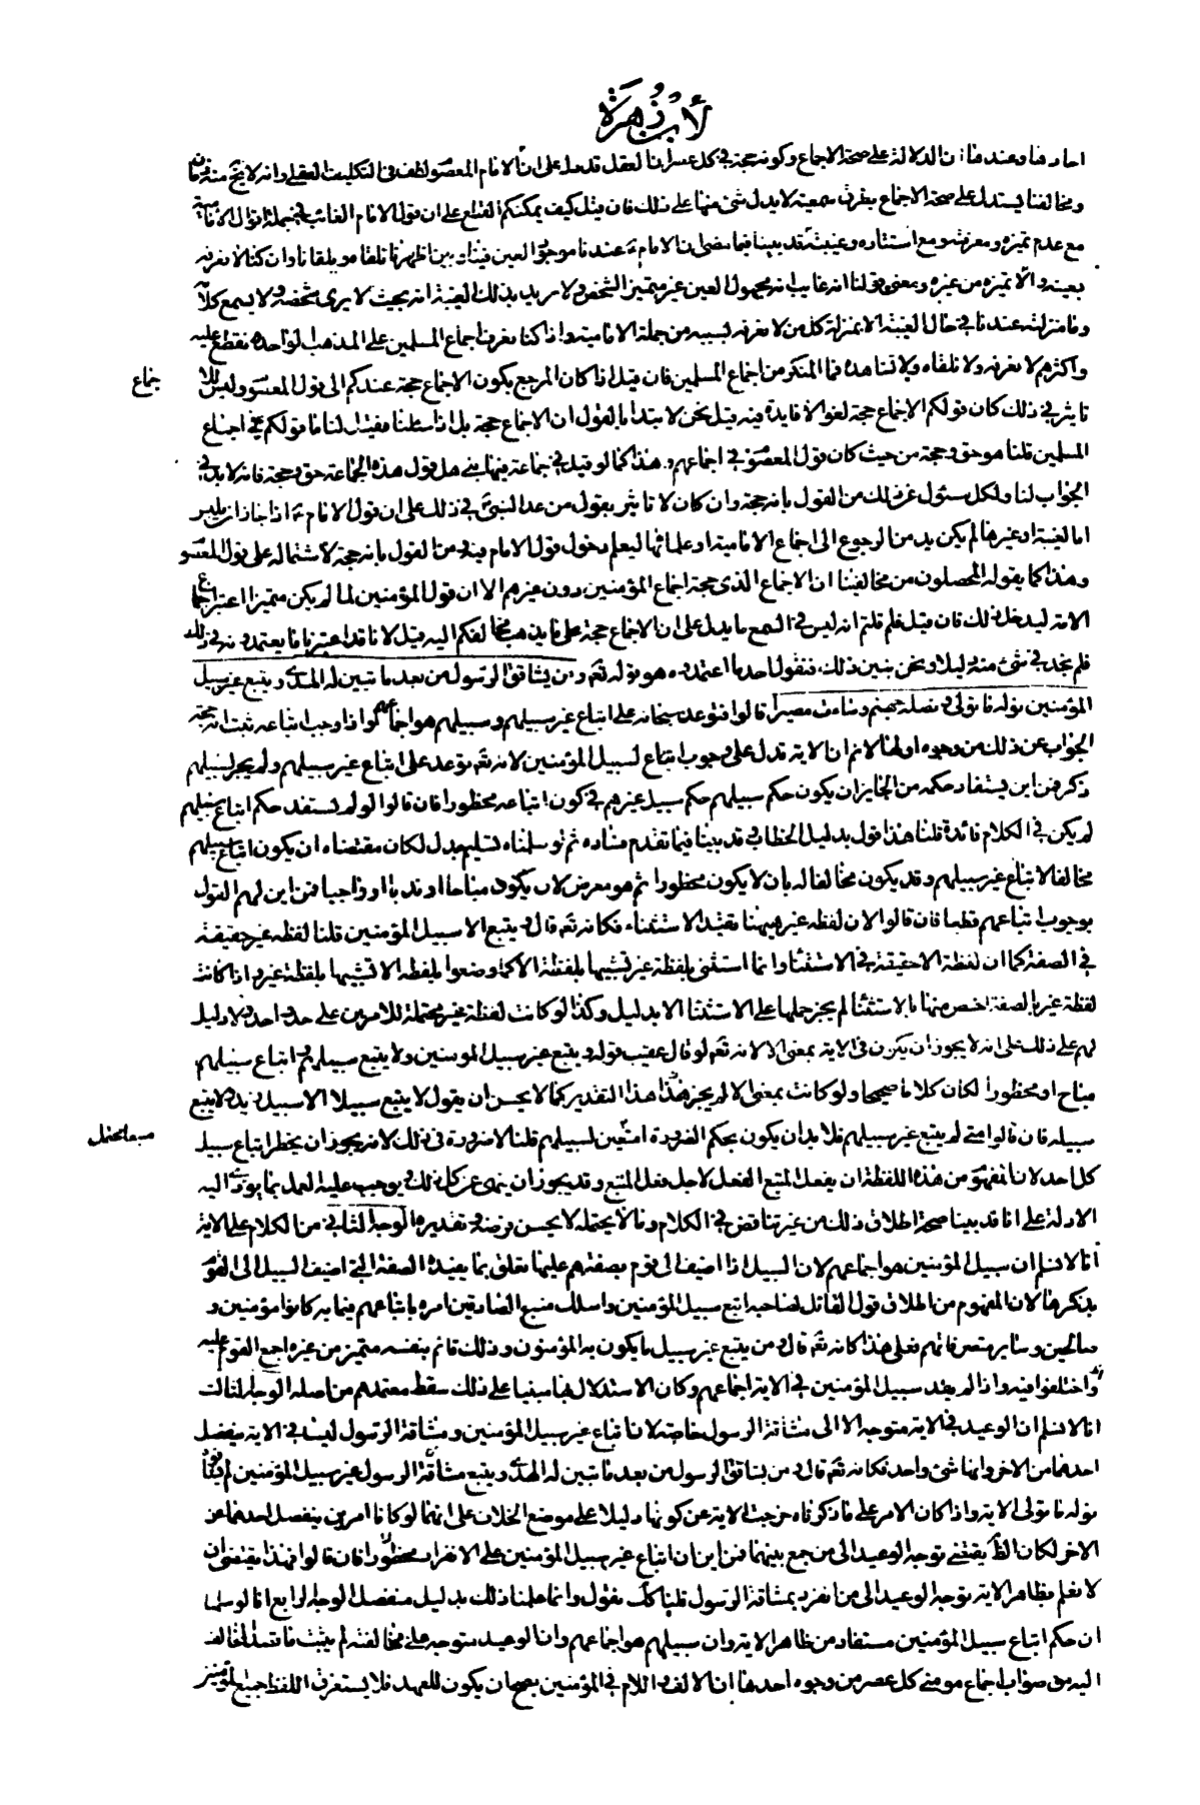 لابن زهرة
احادها وعندنا ان الدلالة على صحة الاجماع وكونه حجة في كل عصر ان العقل قد دل على ان الامام المعصوم لطف في التكليف العقلي وانه لا يخ منه زمان
ومخالفنا يستدل على صحة الاجماع بطرق سمعية لا يدل شئ منها على ذلك فان قيل كيف يمكنكم القطع على ان قول الامام الغائب في جملة اقوال الامامية
مع عدم تميزه ومعرفته ومع استتاره وغيبته قد بينا فيما مضى ان الامام عندنا موجود العين فينا وبين اظهرنا نلقاه ويلقانا وان كنا لا نعرفه
بعينه ولا نميزه من غيره ومعنى قولنا انه غايب انه مجهول العين غير متميز الشخص ولا نريد بذلك الغيبة انه بحيث لا يرى شخصه ولا يسمع كلامه
وما منزلته عندنا في حال الغيبة الا بمنزلة كل من لا نعرفه بنسبه من جملة الامامية واذا كنا نعرف اجماع المسلمين على المذهب الواحد ونقطع عليه
واكثرهم لا نعرفه ولا نلقاه ولا نشاهده فما المنكر من اجماع المسلمين فان قيل اذا كان المرجع بكون الاجماع حجة عندكم الى قول المعصوم وليس للاجماع
تاثير في ذلك كان قولكم الاجماع حجة لغوا لا فايدة فيه قيل نحن لا نبتدأ بالقول ان الاجماع حجة بل اذا سئلنا فقيل لنا ما قولكم في اجماع
المسلمين قلنا هو حق وحجة من حيث كان قول المعصوم في اجماعهم وهذا كما لو قيل في جماعة فيها نبي هل قول هذه الجماعة حق وحجة فانه لا بد في
الجواب لنا ولكل مسئول عن ذلك من القول بانه حجة وان كان لا تاثير بقول من عدا النبي في ذلك على ان قول الامام اذا جاز ان يلتبس
اما لغيبة او غيرها لم يكن بد من الرجوع الى اجماع الامامية او علمائها ليعلم دخول قول الامام فيه ومن القول بانه حجة لاشتماله على قول المعصوم
وهذا كما يقوله المحصلون من مخالفينا ان الاجماع الذي حجة اجماع المؤمنين دون غيرهم الا ان قول المؤمنين لما لم يكن متميزا اعتبر اجماع
الامة ليدخل ذلك فان قيل فلم قلتم انه ليس في السمع ما يدل على ان الاجماع حجة على ما يذهب مخالفكم اليه قيل لانا قد اعتبرنا ما يعتمدونه في ذلك
فلم نجد في شئ منه دليلا ونحن نبين ذلك فنقول احد ما اعتمدوه هو قوله تعم ومن يشاقق الرسول من بعد ما تبين له الهدى ويتبع غير سبيل
المؤمنين نوله ما تولى ونصله جهنم وساءت مصيرا قالوا فتوعد سبحانه على اتباع غير سبيلهم وسبيلهم هو اجماعهم واذا وجب اتباعه ثبت انه حجة
الجواب عن ذلك من وجوه اولها لانم ان الاية تدل على وجوب اتباع لسبيل المؤمنين لانه تعم توعد على اتباع غير سبيلهم ولم يجر لسبيلهم
ذكر فمن اين يستفاد حكمه من الجايز ان يكون حكم سبيلهم حكم سبيل غيرهم في كون اتباعه محظورا فان قالوا لو لم يستفد حكم اتباع سبيلهم
لم يكن في الكلام فائدة قلنا هذا قول بدليل الخطاب وقد بينا فيما تقدم فساده ثم لو سلمناه تسليم جدل لكان مقتضاه ان يكون اتباع سبيلهم
مخالفا لاتباع غير سبيلهم وقد يكون مخالفا له بان لا يكون محظورا ثم هو معرض لان يكون مباحا او ندبا او واجبا فمن اين لهم القول
بوجوب اتباعهم قطعا فان قالوا لان لفظة غير ههنا تفيد الاستثناء فكانه تعم قال ويتبع الا سبيل المؤمنين قلنا لفظة غير حقيقة
في الصفة كما ان لفظة الا حقيقة في الاستثناء وانما استثنى بلفظة غير تشبيها بلفظة الا كما وصفوا بلفظة الا تشبيها بلفظة غير واذا كانت
لفظة غير بالصفة اخص منها بالاستثنا لم يجز حملها على الاستثنا الا بدليل وكذا لو كانت لفظة غير محتملة للامرين على حد واحد ولا دليل
لهم على ذلك على انه لا يجوز ان يكون في الاية بمعنى الا لانه تعم لو قال عقيب قوله ويتبع غير سبيل المومنين ولا يتبع سبيلهم واتباع سبيلهم
مباح او محظورا لكان كلاما صحيحا ولو كانت بمعنى الا لم يجز هذا التقدير كما لا يحسن ان يقول لا يتبع سبيلا الا سبيل زيد ولا يتبع
سبيله فان قالوا متى لم يتبع غير سبيلهم فلا بد ان يكون بحكم الضرورة متبعين لسبيلهم قلنا لا ضرورة في ذلك لانه يجوز ان يحظر اتباع سبيل
كل احد لان المفهوم من هذه اللفظة ان يفعل المتبع الفعل لاجل فعل المتبع وقد يجوز ان ينهى عن كل ذلك ويوجب عليه العمل بما يؤدي اليه
الادلة على انا قد بينا صحة اطلاق ذلك من غير تناقض في الكلام وما لا يحتمله لا يحسن فرضه وتقديره الوجه الثاني من الكلام على الاية
انا لا نسلم ان سبيل المؤمنين هو اجماعهم لان السبيل اذا اضيف الى قوم بصفتهم عليها تعلق بما يفيده الصفة التي اضيف السبيل الى القوم
بذكرها لان المفهوم من اطلاق قول القائل لصاحبه اتبع سبيل المؤمنين واسلك منهج الصادقين امره باتباعهم فيما به كانوا مؤمنين و
صالحين وسائر فعلى هذا كانه تعم قال ومن يتبع غير سبيل ما يكون به المؤمنون وذلك قائم بنفسه متميز من غيره اجمع القوم عليه
او اختلفوا فيه واذا لم يفد سبيل المؤمنين في الاية اجماعهم وكان الاستدلال بها مبنيا على ذلك سقط معتمدهم من اصله الوجه الثالث
انا لا نسلم ان الوعيد في الاية متوجه الا الى مشاقة الرسول خاصة لان اتباع غير سبيل المؤمنين ومشاقة الرسول ليسا في الاية بفصل
احدهما من الاخر وانهما شئ واحد فكانه تعم قال ومن يشاقق الرسول من بعد ما تبين له الهدى ويتبع مشاقة الرسول غير سبيل المؤمنين
نوله ما تولى الاية واذا كان الامر على ما ذكرناه خرجت الاية عن كونها دليلا على موضع الخلاف على انهما لو كانا امرين ينفصل احدهما عن
الاخر لكان الظ يقتضي توجه الوعيد الى من جمع بينهما فمن اين ان اتباع غير سبيل المؤمنين على الانفراد محظور فان قالوا فهذا يقتضي ان
لا نعلم بظاهر الاية توجه الوعيد الى من انفرد بمشاقة الرسول قلنا كك نقول وانما علمنا ذلك بدليل منفصل الوجه الرابع انا لو سلمنا
ان حكم اتباع سبيل المؤمنين مستفاد من ظاهر الاية وان سبيلهم هو اجماعهم وان الوعيد متوجه على مخالفته لم يثبت ما قصد المخالف
اليه من صواب اجماع مومني كل عصر من وجوه احدها ان الالف واللام في المؤمنين يصح ان يكون للعهد فلا يستغرق اللفظ جميع المؤمنين
جماع